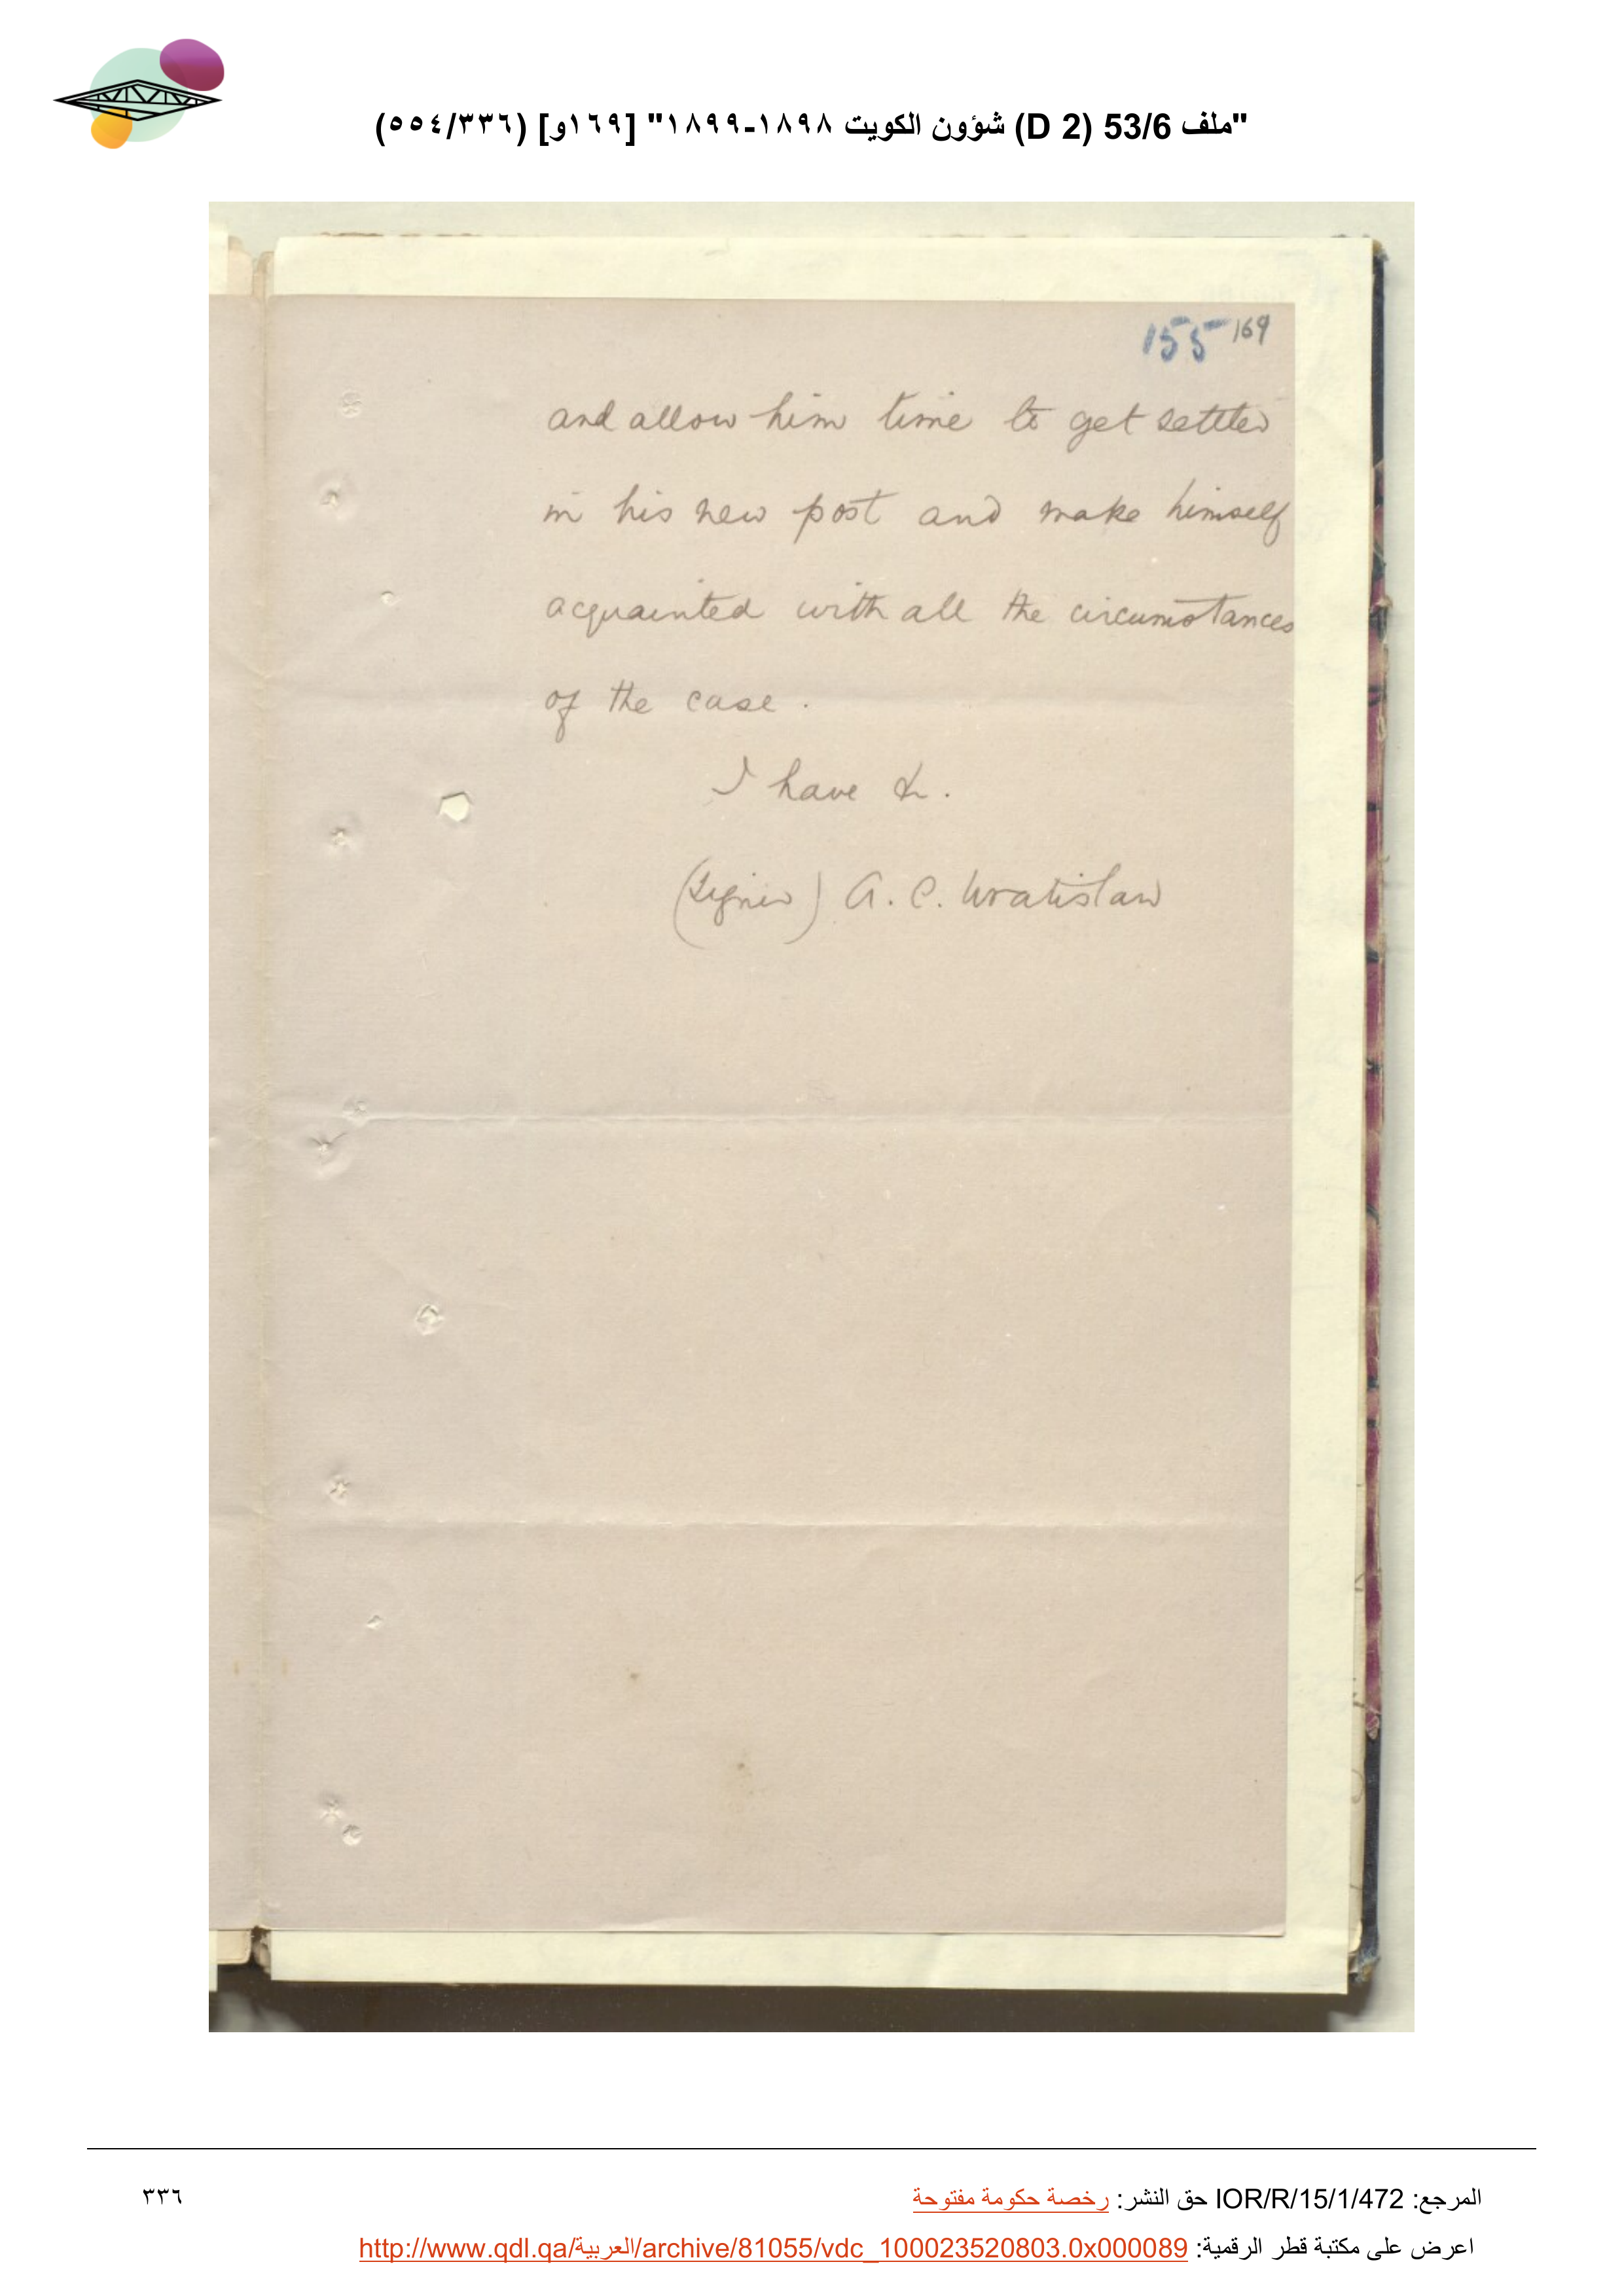 "ملف 53/6 (D 2) شؤون الكويت ١٨٩٨-١٨٩٩" [١٦٩و] (٥٥٤/٣٣٦)
155 169
and allow him time to get settled
in his new post and make himself
acquainted with all the circumstances
of the case.
I have &.
(Signed) A. C. Wratislaw
المرجع: IOR/R/15/1/472 حق النشر: رخصة حكومة مفتوحة
٣٣٦
اعرض على مكتبة قطر الرقمية: http://www.qdl.qa/العربية/archive/81055/vdc_100023520803.0x000089